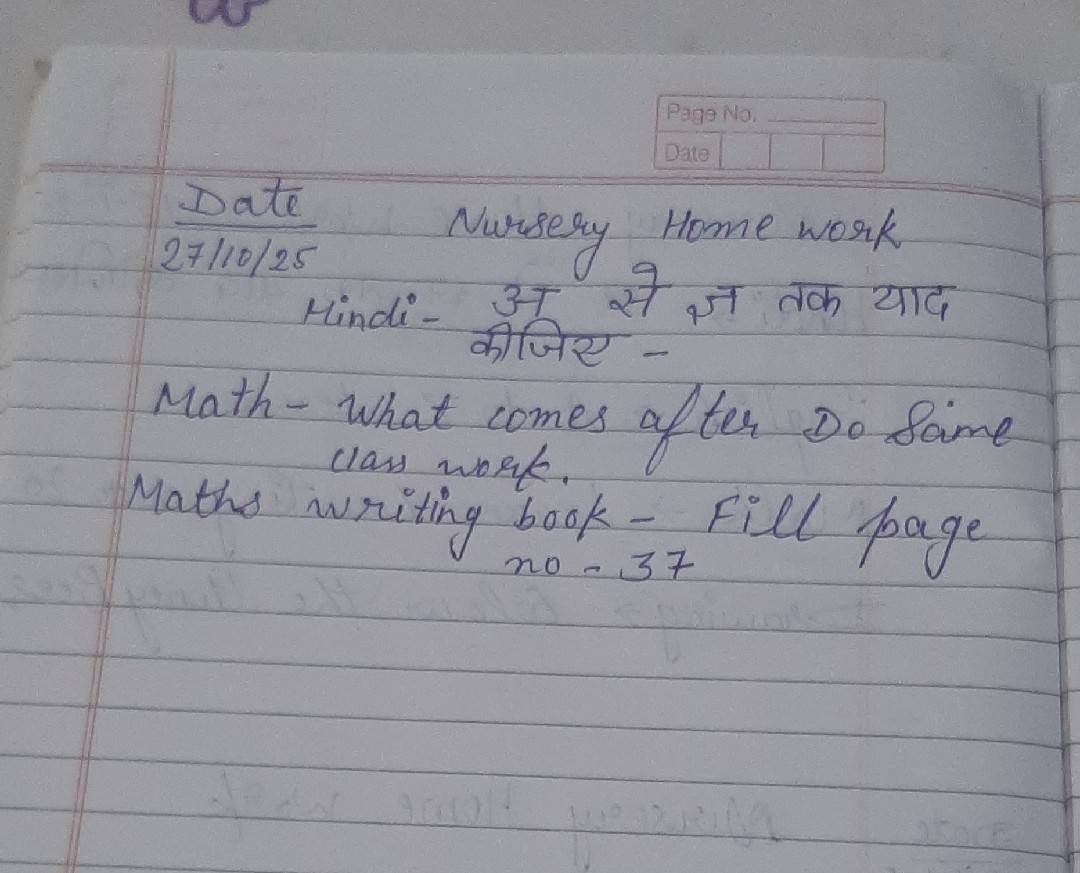 Page No.
Date
Date
27/10/25
Nursery Home work
Hindi - अ से ज्ञ तक याद
कीजिए -
Math - What comes after Do Same
class work.
Maths writing book - Fill page
no - 37